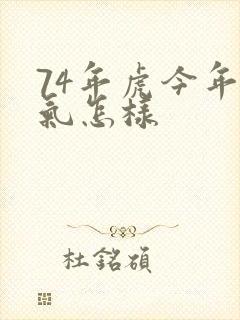 74年虎今年
氣怎樣
杜銘碩